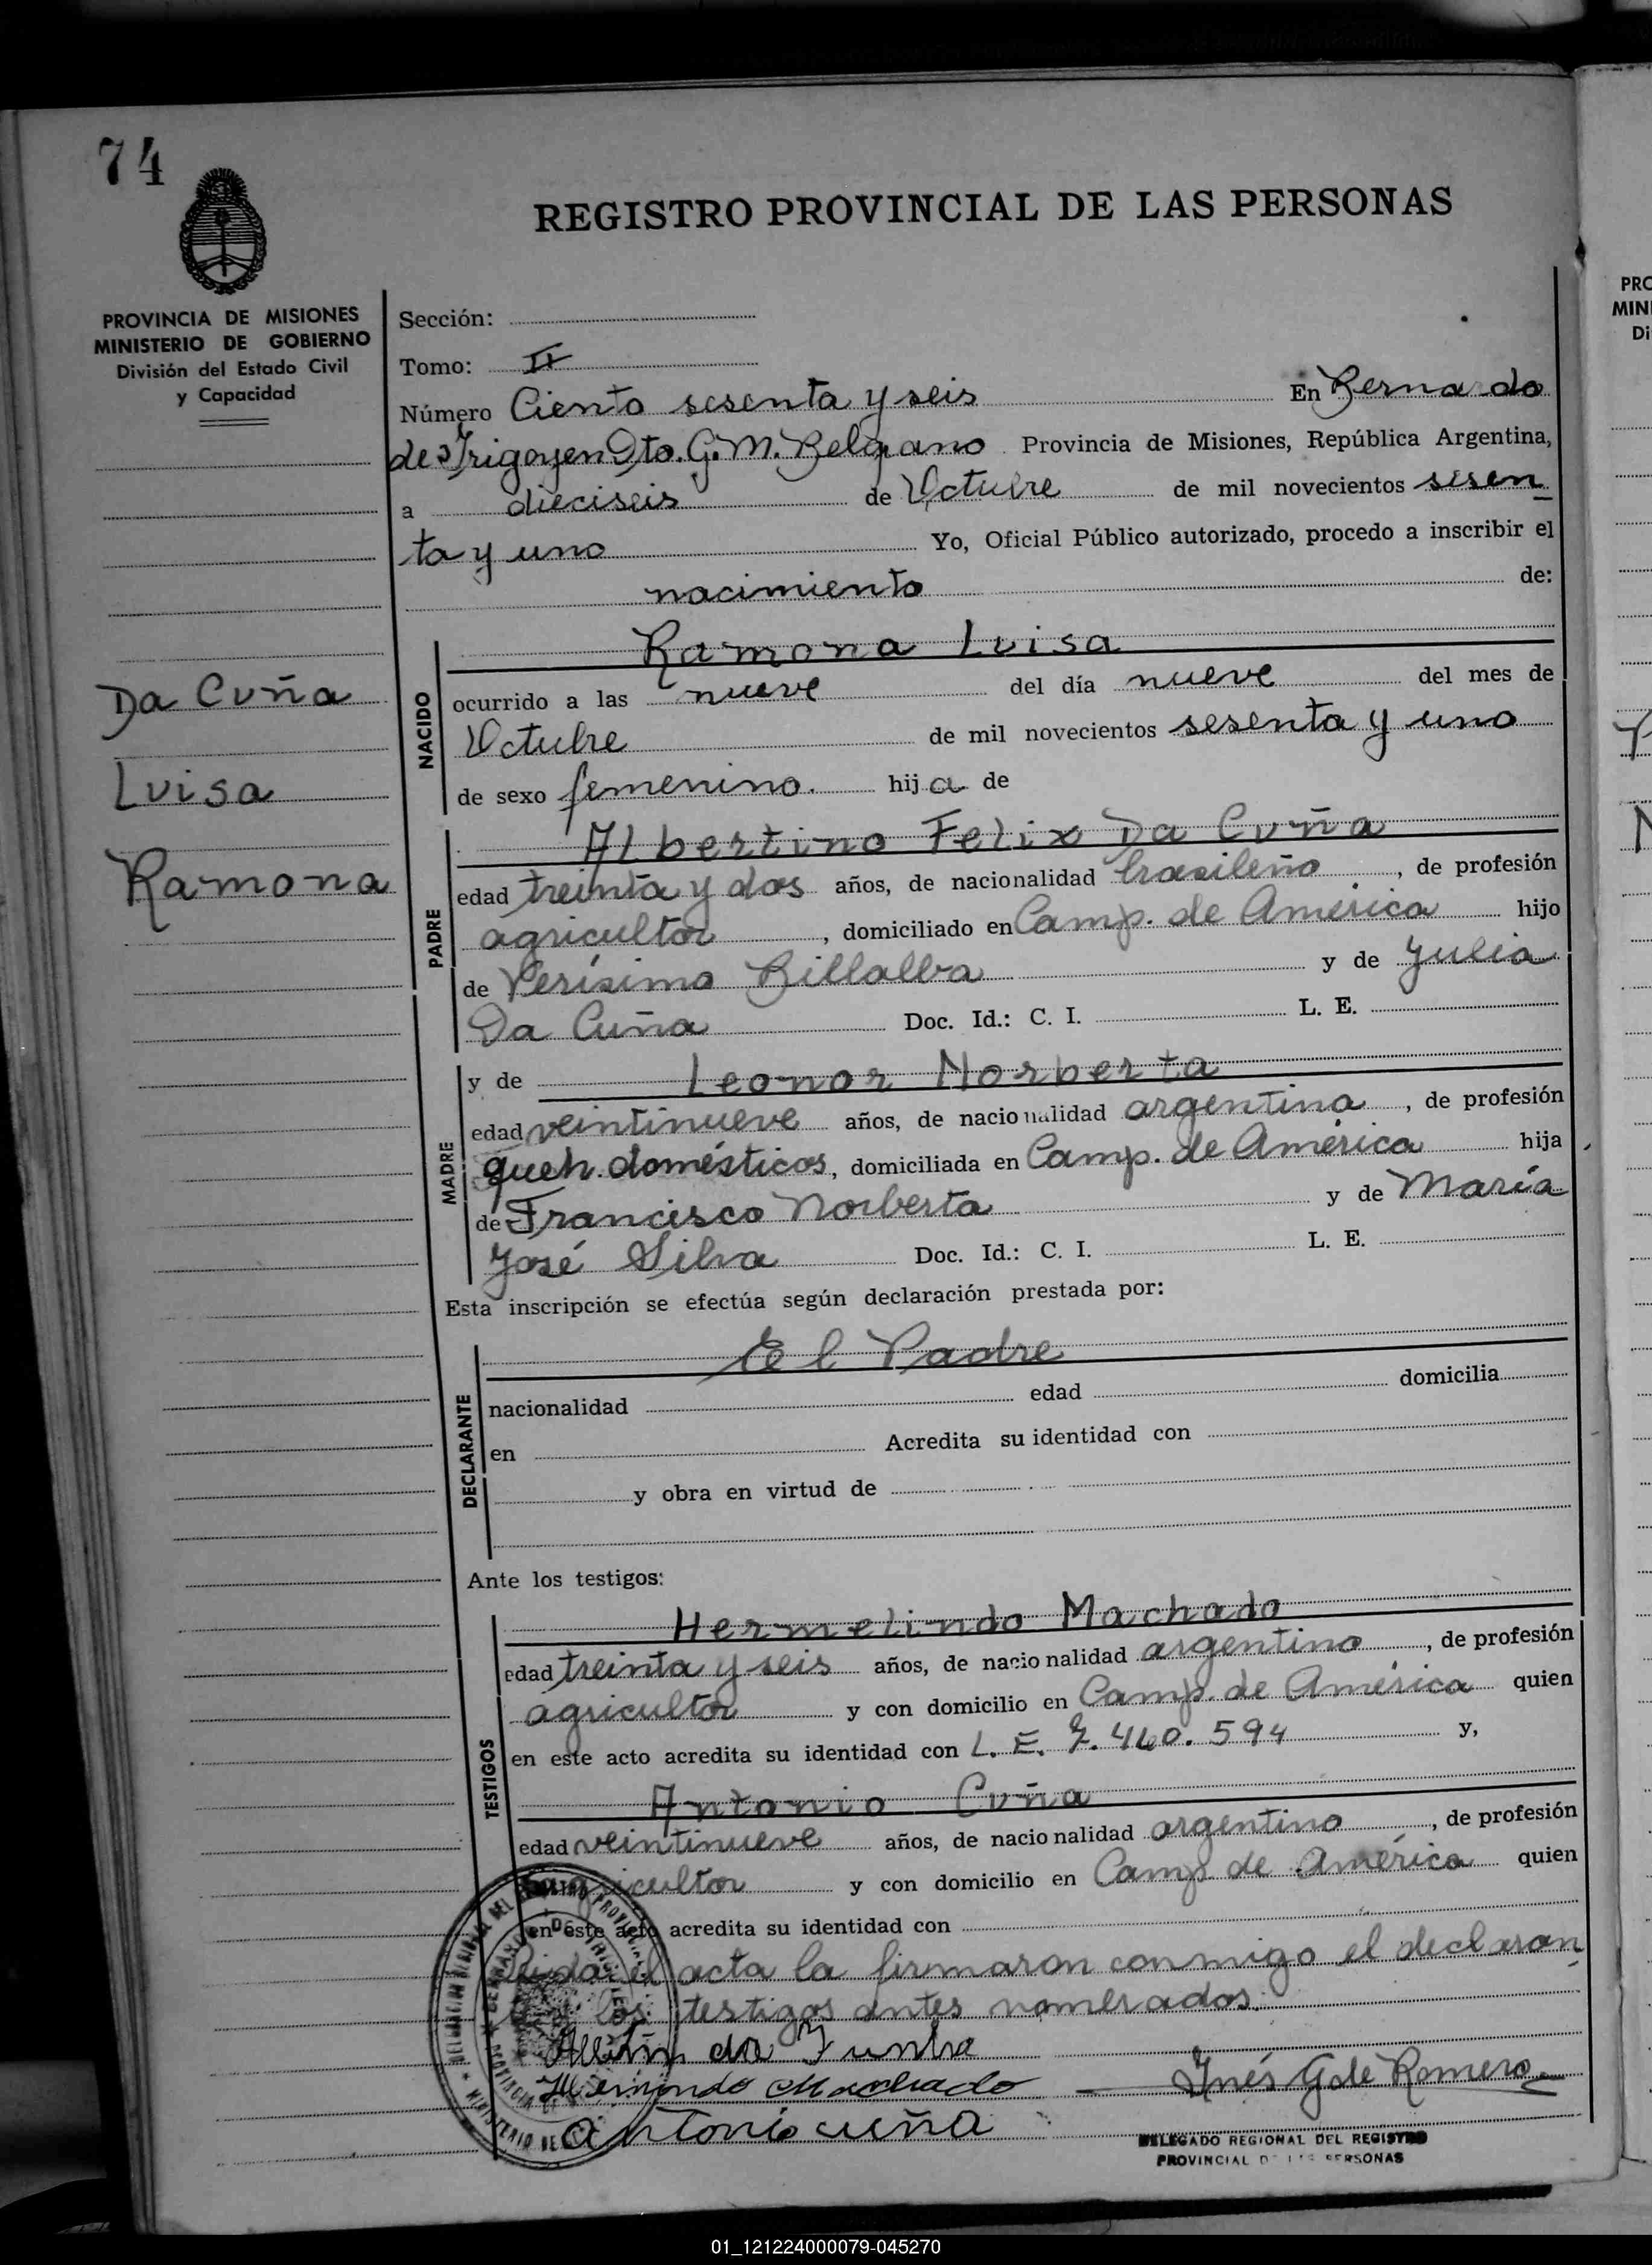 74
REGISTRO PROVINCIAL DE LAS PERSONAS
PROVINCIA DE MISIONES
MINISTERIO DE GOBIERNO
División del Estado Civil
y Capacidad
Da Cuña
Luisa
Ramona
Sección:
Tomo: II
Número Ciento sesenta y seis En Bernardo
de Irigoyen Dto. G. M. Belgrano Provincia de Misiones, República Argentina,
a dieciseis de Octubre de mil novecientos sesen
ta y uno Yo, Oficial Público autorizado, procedo a inscribir el
nacimiento de:
NACIDO
Ramona Luisa
ocurrido a las nueve del día nueve del mes de
Octubre de mil novecientos sesenta y uno
de sexo femenino. hija de
PADRE
Albertino Felix Da Cuña
edad treinta y dos años, de nacionalidad brasileño, de profesión
agricultor, domiciliado en Camp. de América hijo
de Verísimo Billalba y de Julia
Da Cuña Doc. Id.: C. I. L. E.
MADRE
y de Leonor Norberta
edad veintinueve años, de nacionalidad argentina, de profesión
queh. domésticos, domiciliada en Camp. de América hija
de Francisco Norberta y de María
José Silva Doc. Id.: C. I. L. E.
Esta inscripción se efectúa según declaración prestada por:
DECLARANTE
El Padre
nacionalidad edad domicilia
en Acredita su identidad con
y obra en virtud de
Ante los testigos:
TESTIGOS
Hermelindo Machado
edad treinta y seis años, de nacionalidad argentino, de profesión
agricultor y con domicilio en Camp. de América quien
en este acto acredita su identidad con L. E. 7.460.594 y,
Antonio Cuña
edad veintinueve años, de nacionalidad argentino, de profesión
agricultor y con domicilio en Camp de América quien
en este acto acredita su identidad con
leida el acta la firmaron conmigo el declaran
los testigos antes nomerados.
da Cunha
Machado
Inés G de Romero
Antonio cuña
DELEGADO REGIONAL DEL REGISTRO
PROVINCIAL DE LAS PERSONAS
01_121224000079-045270